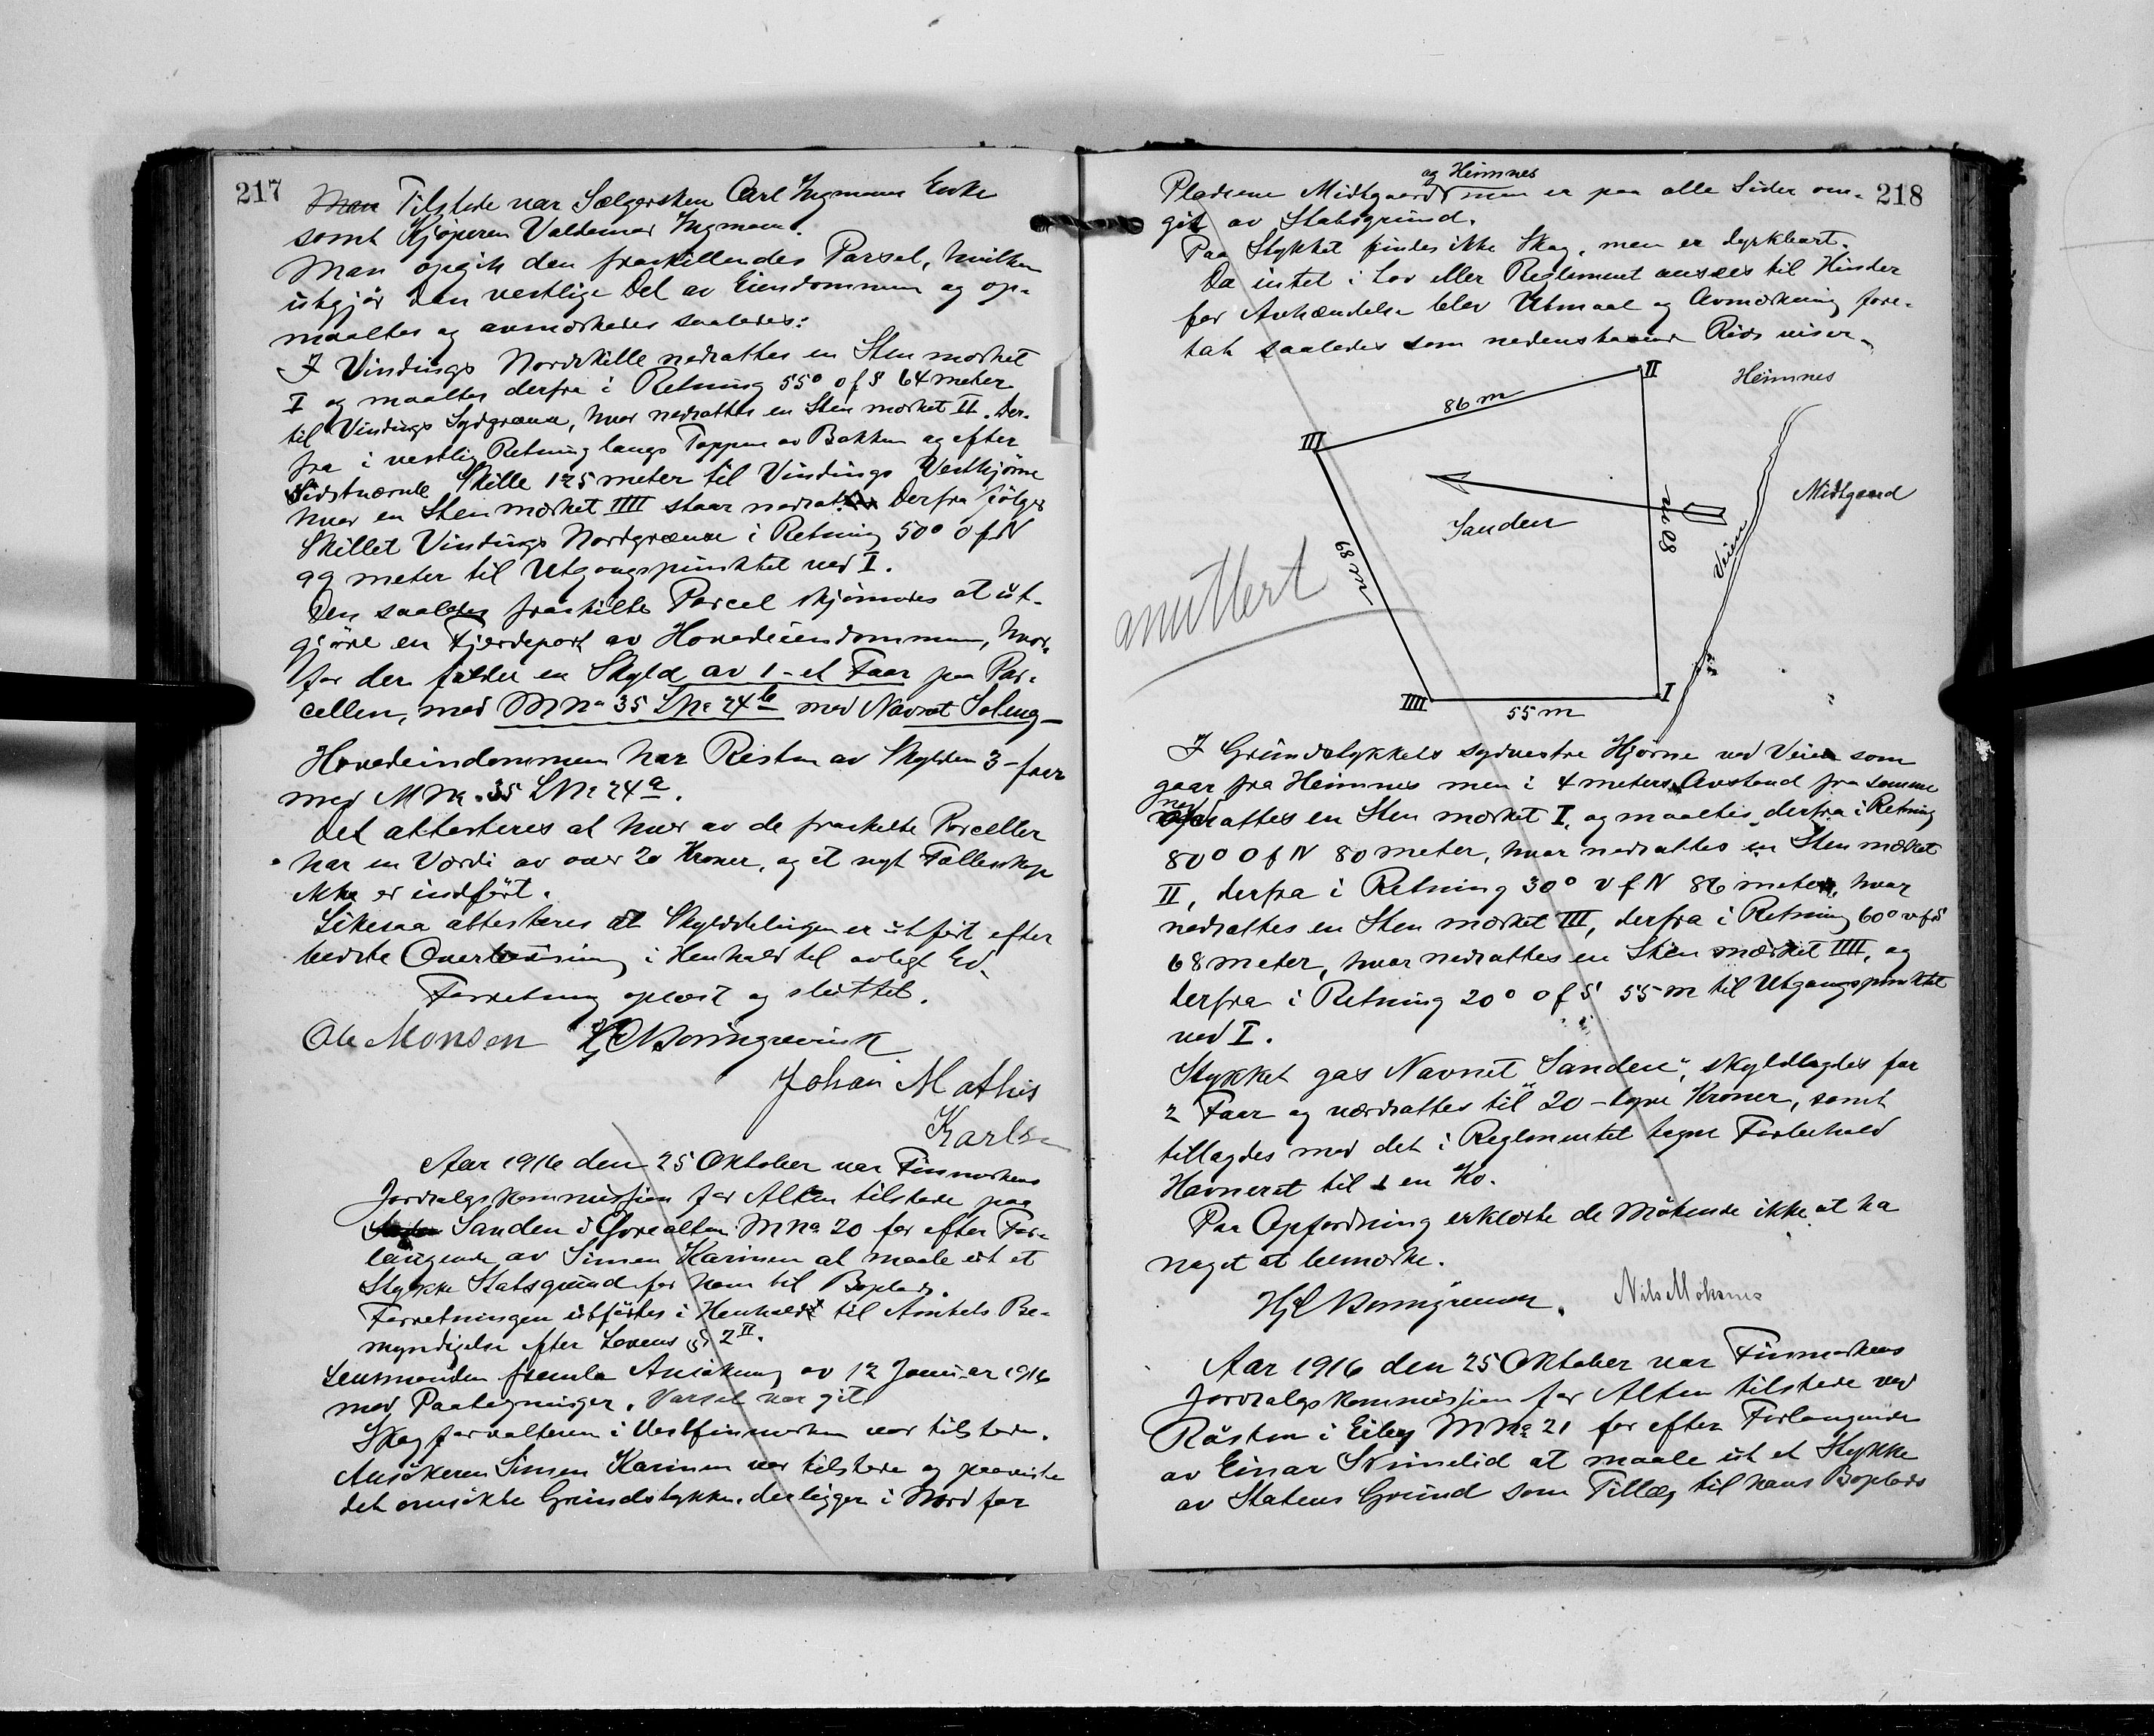 217
Man Tilstede var Sælgersken Carl Ingmans Enke
samt Kjøperen Valdemar Ingman.
Man opgik den fraskillendes Parsel, hvilken
utgjør den vestlige Del av Eiendommen og op-
maaltes og avmerkedes saaledes:
I Vindings Nordskille nedsattes en Sten merket
I og maaltes derfra i Retning 55° ofS 64 meter
til Vindings Sydgrænse, hvor nedsattes en Sten merket II. Der-
fra i vestlig Retning langs Toppen av Bakken og efter
Sidstnævnte Skille 125 meter til Vindings Vesthjørne
hvor en Sten merket IIII staar nedsat. Derfra følger
Skillet Vindings Nordgrænse i Retning 50° ofN
99 meter til Utgangspunktet ved I.
Den saaledes fraskilte Parcel skjønnes at ut-
gjøre en Fjerdepart av Hovedeiendommen, hvor-
for der falder en Skyld av 1 - et Faar paa Par-
cellen, med MNo 35 LNo 24b med Navnet Soleng -
Hovedeindommen har Resten av Skylden 3 - faar
med MNo. 35 LNo 24a.
Det attesteres at hver av de fraskilte Parceller
har en Værdi av over 20 Kroner, og et nyt Fællesskap
ikke er indført.
Likesaa attesteres at Skylddelingen er utført efter
bedste Overbevisning i Henhold til avlagt Ed.
Forretning oplæst og sluttet.
Ole Monsen
Johan Mathis
Karlsen
Aar 1916 den 25 Oktober var Finmarkens
Jordsalgskommission for Alten tilstede paa
Sanden i Øvrealten MNo 20 for efter For-
langende av Simen Karinen at maale ut et
Stykke Statsgrund for ham til Boplads.
Forretningen utførtes i Henhold til Amtets Be-
myndigelse efter Lovens § 2 II.
Lensmanden fremla Ansøkning av 12 Januar 1916
med Paategninger. Varsel var git.
Skogforvalteren i Vestfinmarken var tilstede.
Ansøkeren Simen Karinen var tilstede og paaviste
det omsøkte Grundstykke. der ligger i Nord for
218
og Heimnes
Pladsene Midtgaard men er paa alle Sider om-
git av Statsgrund.
Paa Stykket findes ikke Skog, men er dyrkbart.
Da intet i Lov eller Reglement ansees til Hinder
for Avhændelse blev Utmaal og Avmerkning fore-
tat saaledes som nedenstaaende Rids viser.
II
Heimnes
86 m
III
Midtgaard
Sanden
80 m
Veien
68 m
IIII
I
55 m
I Grundstykkets sydvestre Hjørne ved Veien som
gaar fra Heimnes men i 4 meters Avstand fra samme
nedsattes en Sten merket I, og maaltes derfra i Retning
80° OfN 80 meter, hvor nedsattes en Sten merket
II, derfra i Retning 30° v f N 86 meter, hvor
nedsattes en Sten merket III, derfra i Retning 60° v f S
68 meter, hvor nedsattes en Sten mærket IIII, og
derfra i Retning 20° o f S 55 m til Utgangspunktet
ved I.
Stykket gas Navnet "Sanden", skyldlagdes for
2 Faar og værdsattes til 20 - tyve Kroner, samt
tillagdes med det i Reglementet tagne Forbehold
Havneret til 1 en Ko.
Paa Opfordning erklærte de Møtende ikke at ha
noget at bemerke.
Aar 1916 den 25 Oktober var Finmarkens
Jordsalgskommission for Alten tilstede ved
Røsten i Eiby MNo 21 for efter Forlangende
av Einar Skimelid at maale ut et Stykke
av Statens Grund som Tillæg til hans Boplads